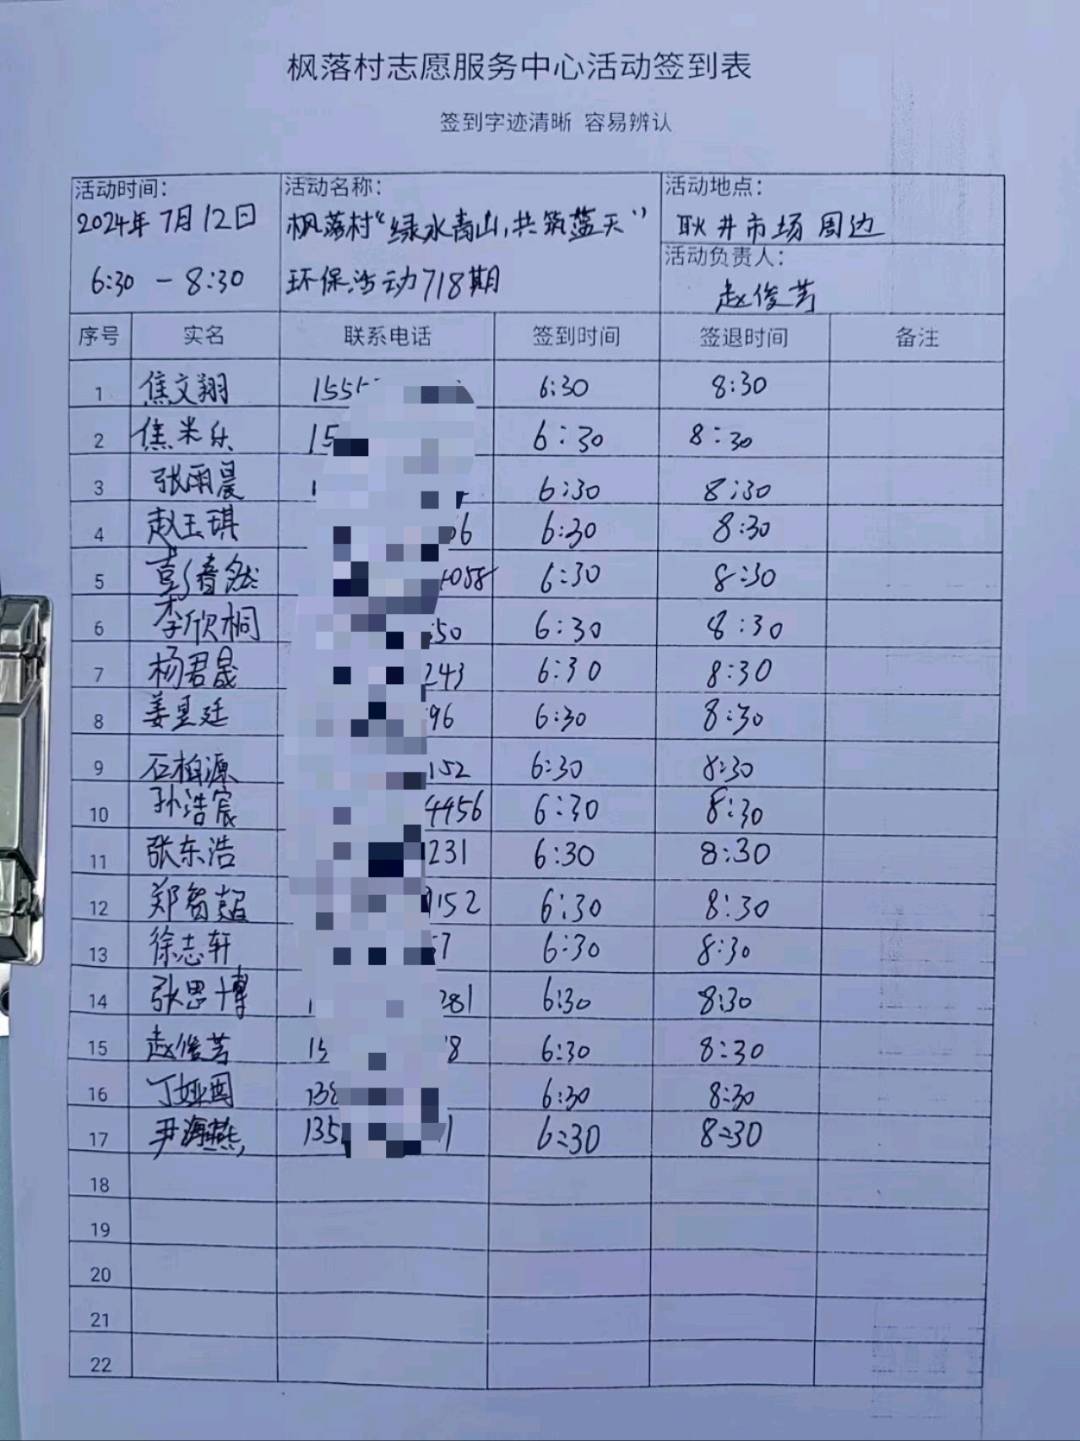 枫落村志愿服务中心活动签到表
签到字迹清晰 容易辨认
活动时间:
2024年7月12日
6:30 - 8:30
活动名称:
枫落村“绿水青山,共筑蓝天”
环保活动718期
活动地点:
耿井市场周边
活动负责人:
赵俊芳
序号 实名 联系电话 签到时间 签退时间 备注
1 焦文翔 1555 6:30 8:30
2 焦米乐 15 6:30 8:30
3 张雨晨 1 6:30 8:30
4 赵玉琪 66 6:30 8:30
5 彭 058 6:30 8:30
6 李欣桐 50 6:30 8:30
7 杨君晟 243 6:30 8:30
8 姜昱廷 96 6:30 8:30
9 石柏源 152 6:30 8:30
10 孙浩宸 4456 6:30 8:30
11 张东浩 231 6:30 8:30
12 郑智超 152 6:30 8:30
13 徐志轩 57 6:30 8:30
14 张思博 1 281 6:30 8:30
15 赵俊芳 15 8 6:30 8:30
16 丁娅 138 6:30 8:30
17 尹海燕 135 1 6:30 8:30
18
19
20
21
22